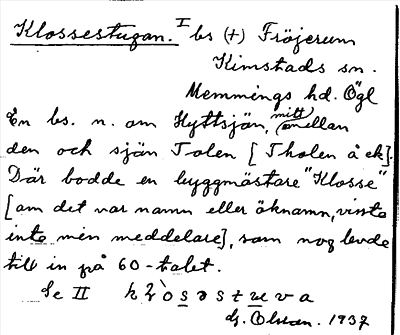 Klossestugan. I bs (+) Fröjerum
Kimstads sn.
Memmings hd. Ögl
En bs. n. om Hyttsjön, mitt emellan
den och sjön Tolen [Tholen å ek].
Där bodde en byggmästare "Klosse"
[om det var namn eller öknamn, visste
inte min meddelare], som nog levde
till in på 60-talet.
Se II
G. Olsson. 1937